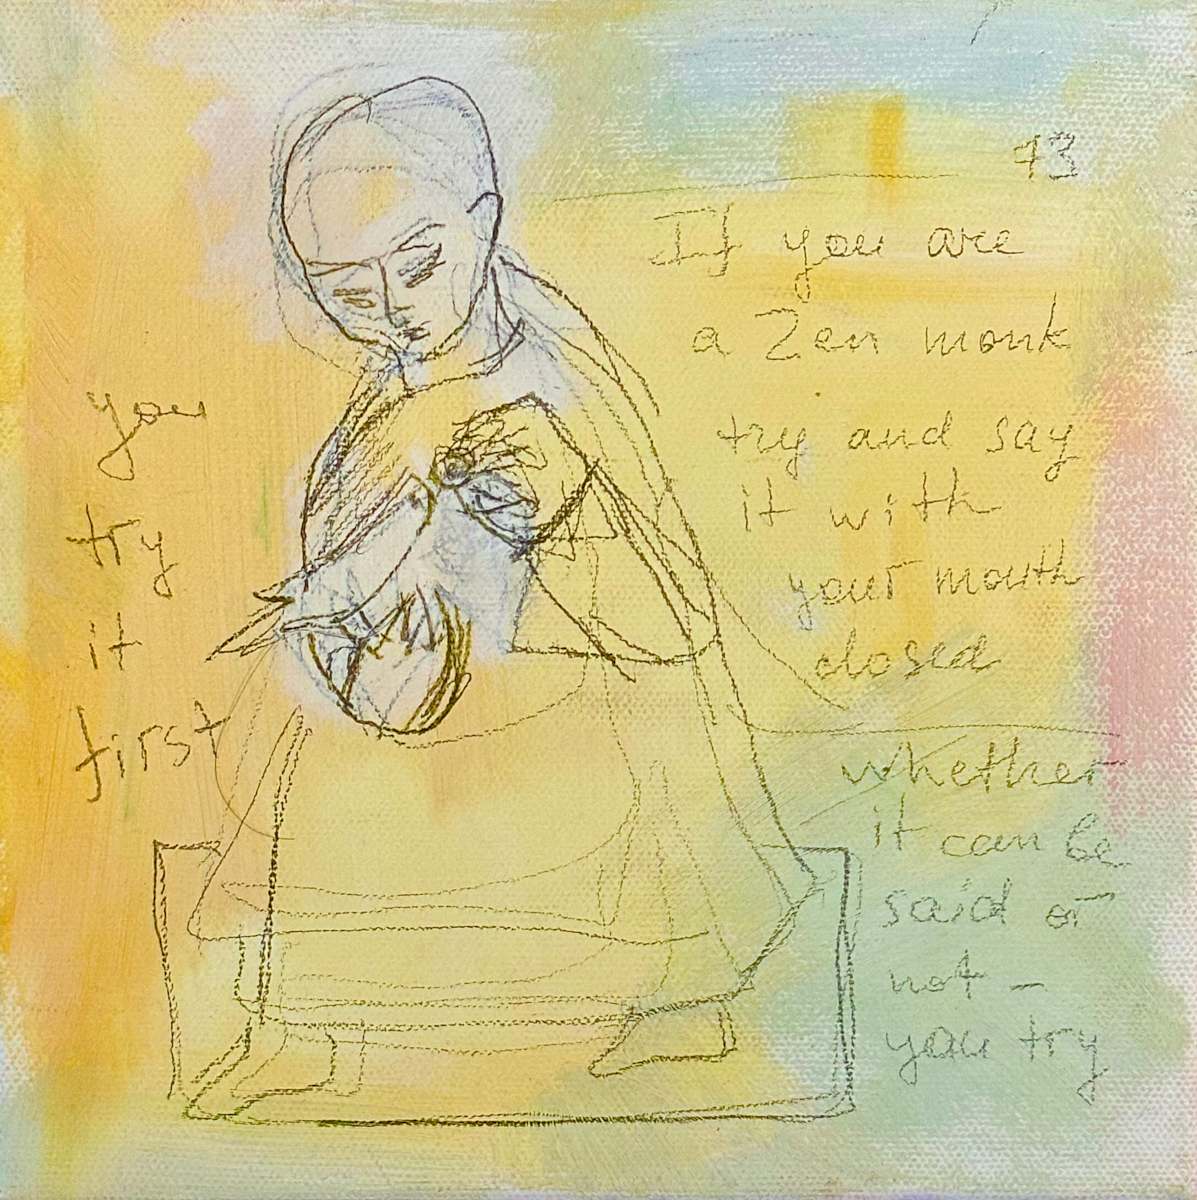 43
If you are
a Zen monk
try and say
it with
your mouth
closed
whether
it can be
said or
not –
you try
you
try
it
first